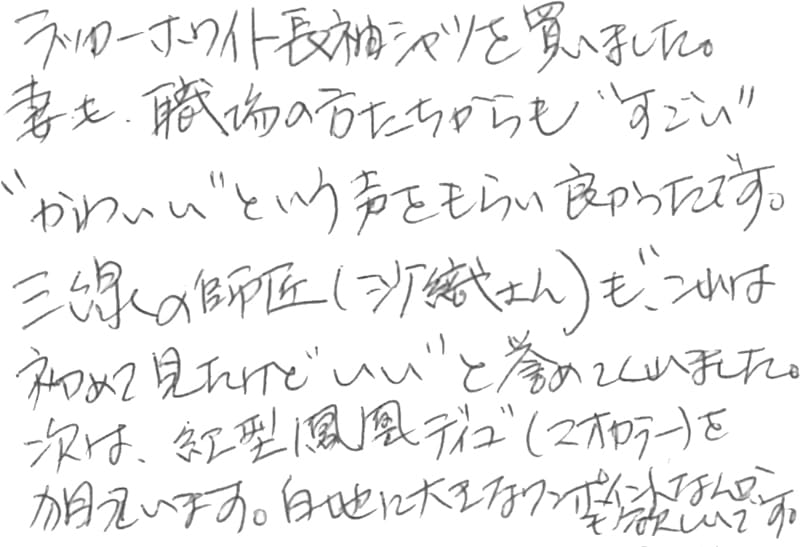 ラッカーホワイト長袖シャツを買いました。
妻も、職場の方たちからも"すごい"
"かわいい"という声をもらい良かったです。
三線の師匠(沙織さん)も、これは
初めて見たけど"いい"と誉めてくれました。
次は、紅型鳳凰デイゴ(マオカラー)を
狙います。白地に大きなワンポイントなんか
も欲しいです。